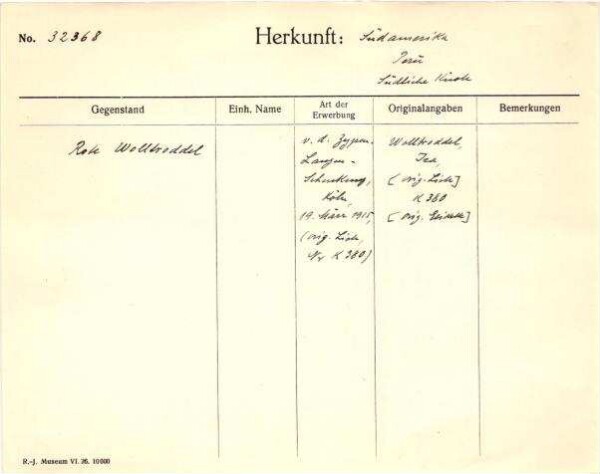 No. 32368
Herkunft: Südamerika
Peru
Südliche Küste
Gegenstand
Einh. Name
Art der
Erwerbung
Originalangaben
Bemerkungen
Rote Wolltroddel
v. d. Zypen-
Langen-
Schenkung,
Köln,
19. März 1915,
(orig. Liste,
Nr K 360)
Wolltroddel,
Ica,
[orig. Liste]
K 360
[orig. Etikette]
R.-J. Museum VI. 26. 10000